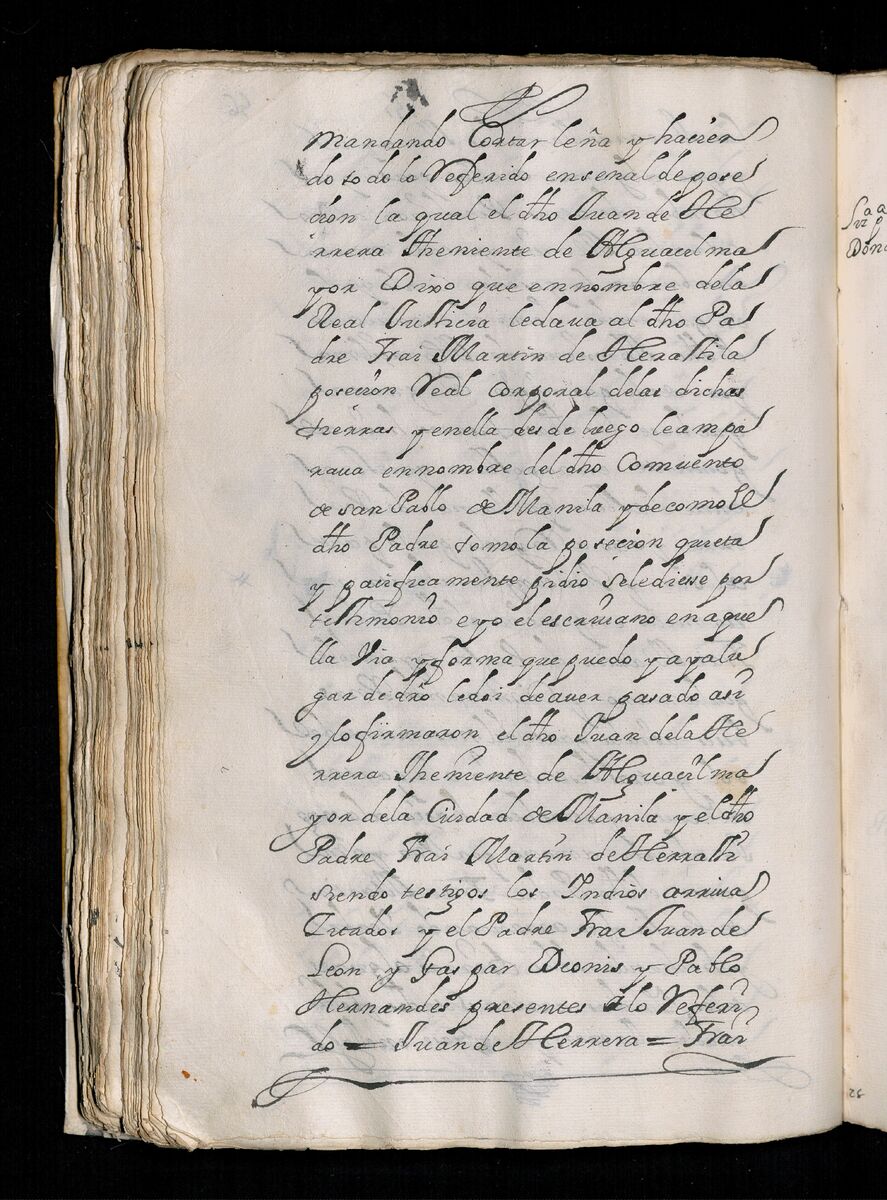 mandando Cortar leña y hacien
do todo lo Referido en señal de pose
cion la qual el dho Juan de He
rrera Theniente de Alguacil ma
yor Dixo que en nombre de la
Real Justicia le dava al dho Pa
dre Frai Martin de Herasti la
posecion Real corporal de las dichas
tierras y en ella desde luego le ampa
rava en nombre del dho Comvento
de san Pablo de Manila y de como el
dho Padre tomo la posecion quieta
y pacificamente pidio se le diesse por
testimonio e yo el escrivano en aque
lla via y forma que puedo y aya lu
gar de dro le doi de aver pasado asi
y lo firmaron el dho Juan de la He
rrera Theniente de Alguacil ma
yor de la Ciudad de Manila y el dho
Padre Frai Martin de Herrasti
siendo testigos los Indios arriva
Citados y el Padre Frai Juan de
Leon y Gaspar Deonis y Pablo
Hernandes presentes a lo Referi
do = Juan de Herrera = Frai